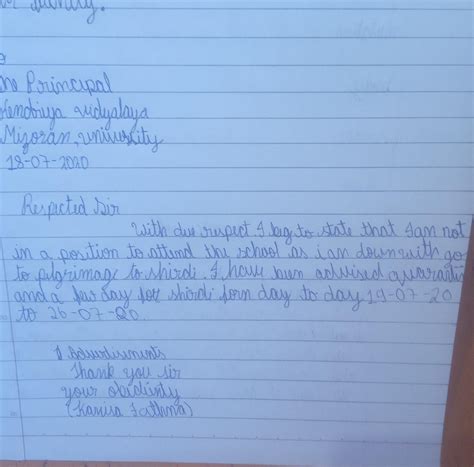 for
To
The Principal
Kendriya vidyalaya
Mizoran, university
18-07-2020
Respected Sir
With due respect I beg to state that I an not
in a position to attend the school as i an down with go
to pilgrimag to shirdi. I have been advised
and a far day for shirdi form day to day 19-07-20
to 26-07-20.
Thank you sir
your
(Kanisa Fathma)